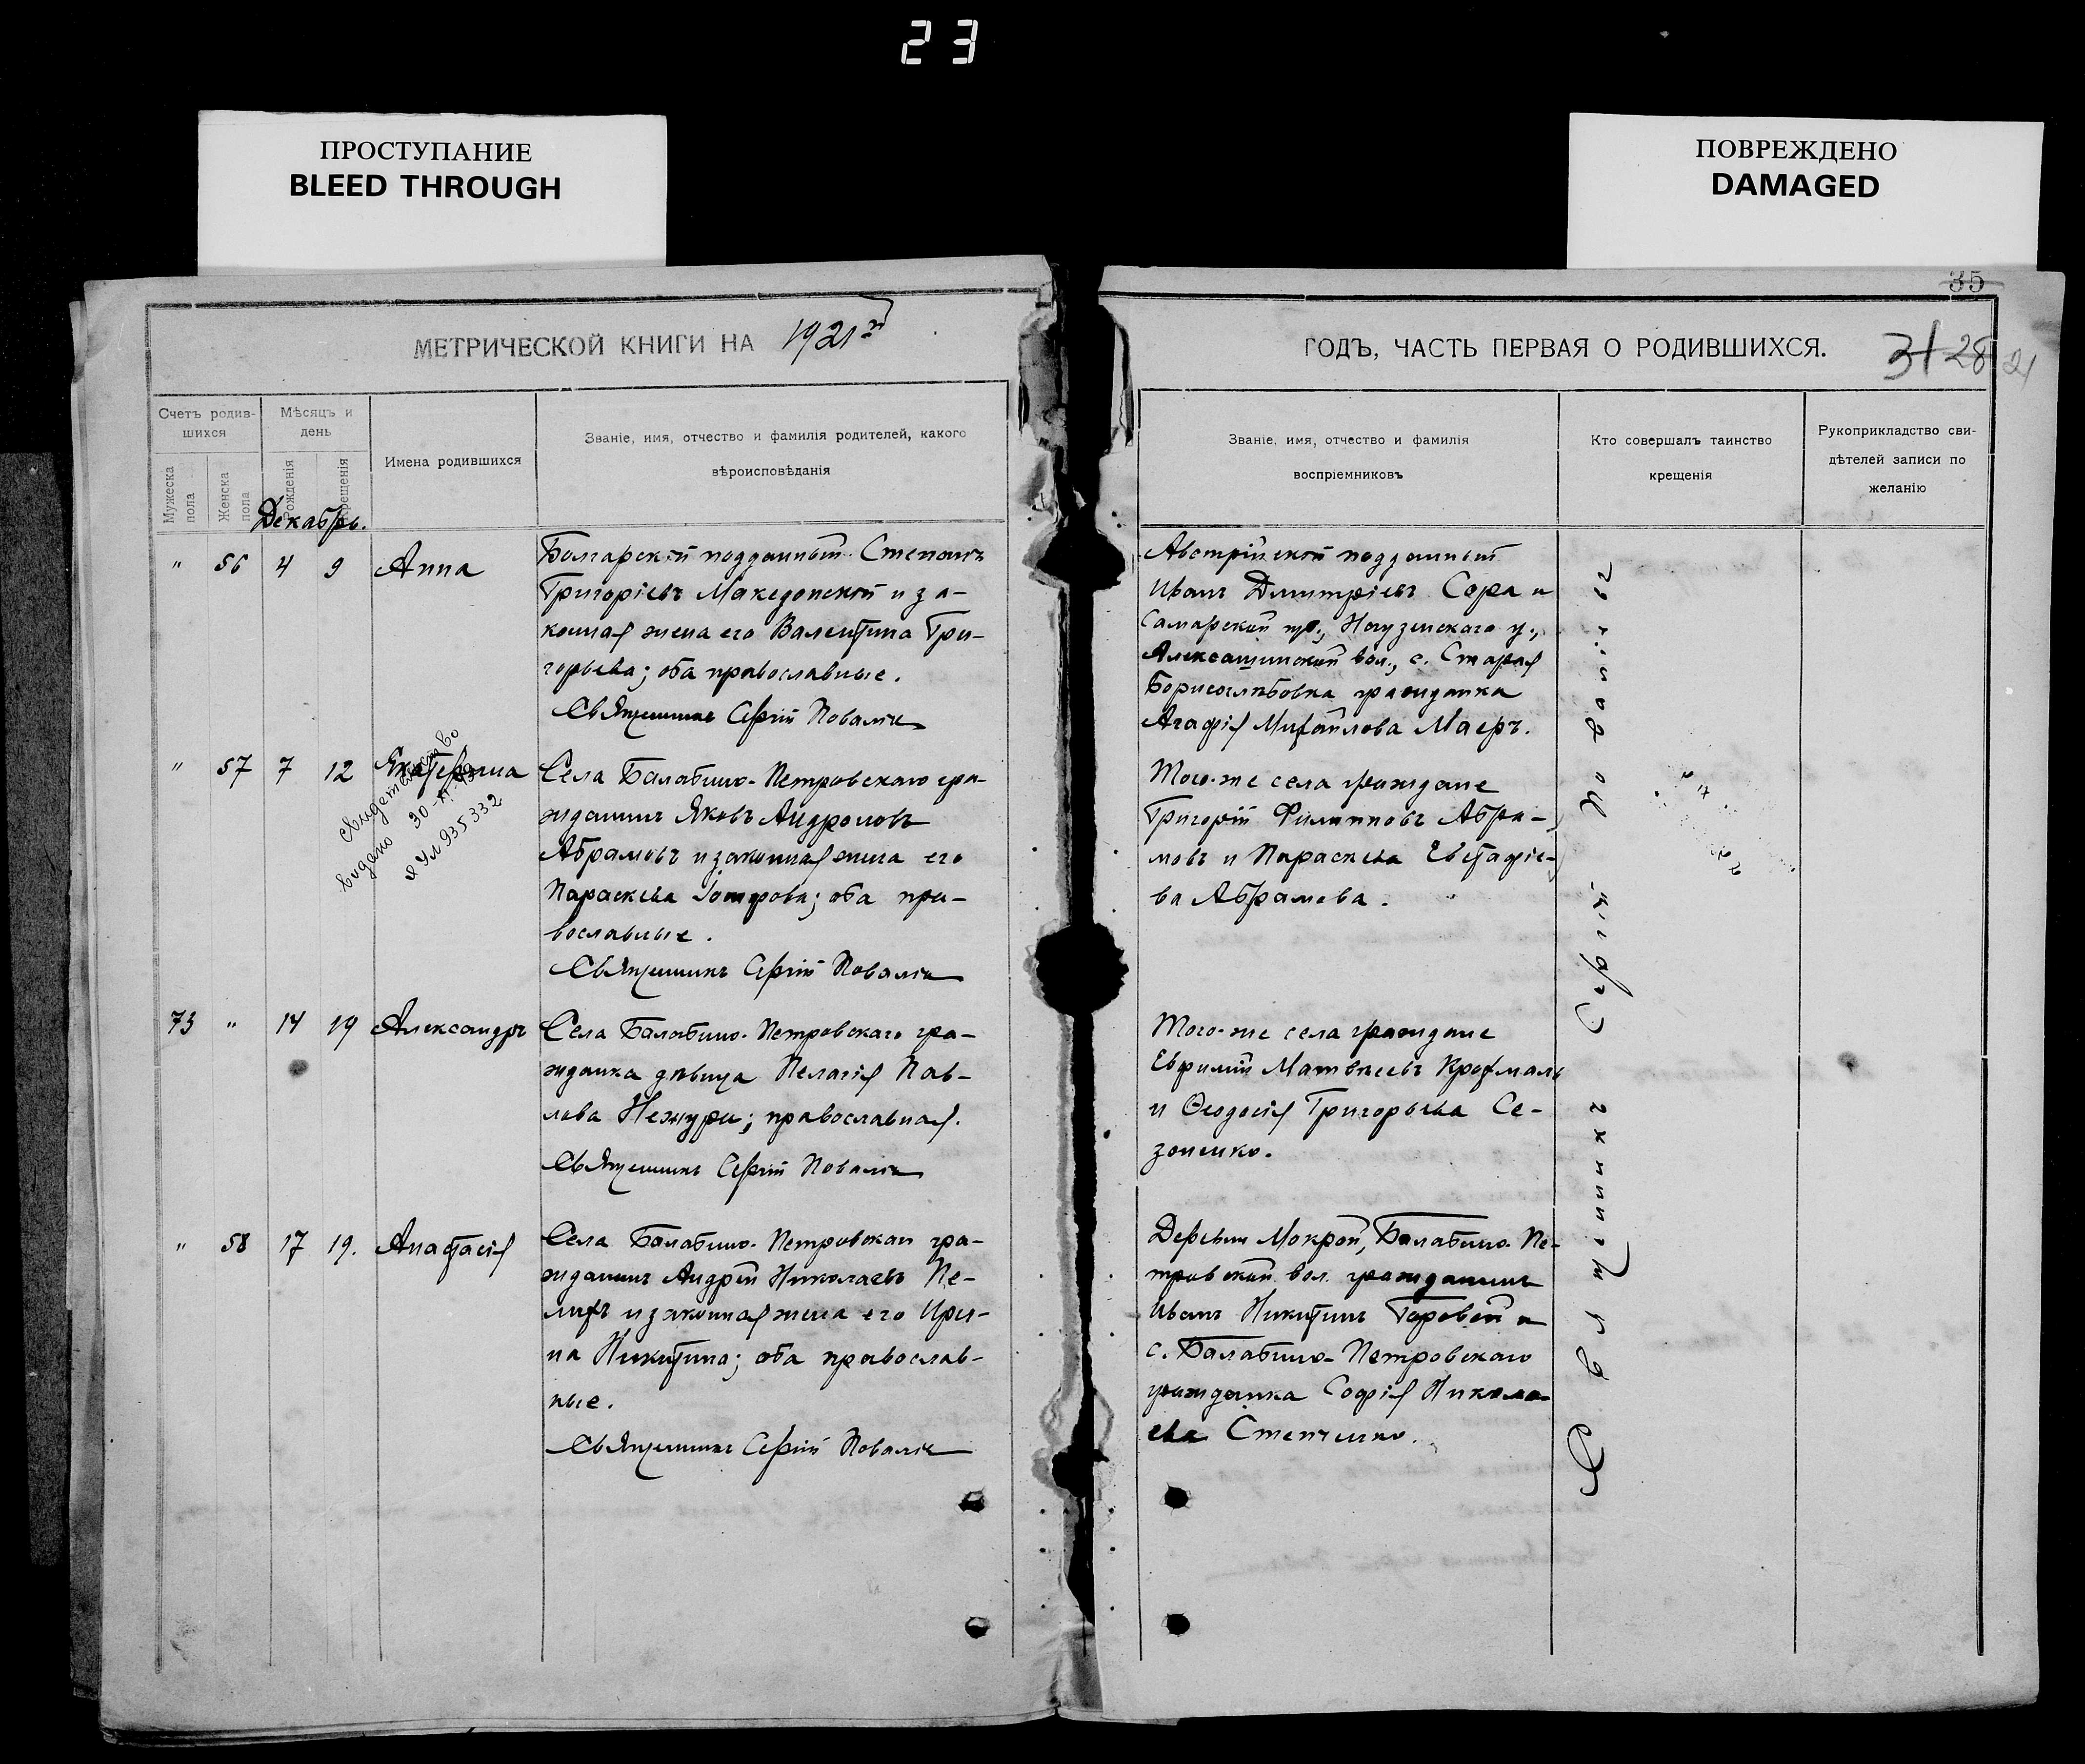 23
ПРОСТУПАНИЕ
BLEED THROUGH
ПОВРЕЖДЕНО
DAMAGED
35
МЕТРИЧЕСКОЙ КНИГИ НА 1921
ГОДЪ, ЧАСТЬ ПЕРВАЯ О РОДИВШИХСЯ.
31 28 21
Счетъ родив-
шихся
Мужеска
пола
Женска
пола
Мѣсяцъ и
день
Рожденія
Крещенія
Имена родившихся
Званіе, имя, отчество и фамилія родителей, какого
вѣроисповѣданія
Званіе, имя, отчество и фамилія
воспріемниковъ
Кто совершалъ таинство
крещенія
Рукоприкладство сви-
дѣтелей записи по
желанію
Декабрь.
" 56 4 9 Анна
Болгарскій подданный Степанъ
Григоріевъ Македонскій и за-
конная жена его Валентина Гри-
горьева; оба православные.
Священникъ Сергій
Австрійскій подданный
Иванъ Димитріевъ Сора и
Самарской гр., Новоузенскаго у.,
вол., с. Старая
Борисоглѣбовка гражданка
Агафія Михайлова Маеръ.
" 57 7 12 Екатерина
свидетельство
выдано 30-
935332
Села Балабино-Петровскаго гра-
жданинъ Яковъ Андроновъ
Абрамовъ и законная жена его
Параскева; оба пра-
вославные.
Священникъ Сергій
Того-же села граждане
Григорій Филипповъ Абра-
мовъ и Параскева Евстафіе-
ва Абрамова.
73 " 14 19 Александръ
Села Балабино-Петровскаго гра-
жданка дѣвица Пелагія Пав-
лова Нежура; православная.
Священникъ Сергій
Того-же села граждане
Евфимій Матвѣевъ Крохмаль
и Ѳеодосія Григорьева Се-
зоненко.
" 58 17 19. Анастасія
Села Балабино-Петровскаго гра-
жданинъ Андрей Николаевъ Пе-
лихъ и законная жена его Ири-
на Никитина; оба православ-
ные.
Священникъ Сергій
Деревни Мокрой, Балабино-Пе-
тровской вол. гражданинъ
Иванъ Никитинъ Горовой и
с. Балабино-Петровскаго
гражданка Софія Никола-
ева Степченко.
Священникъ Сергій